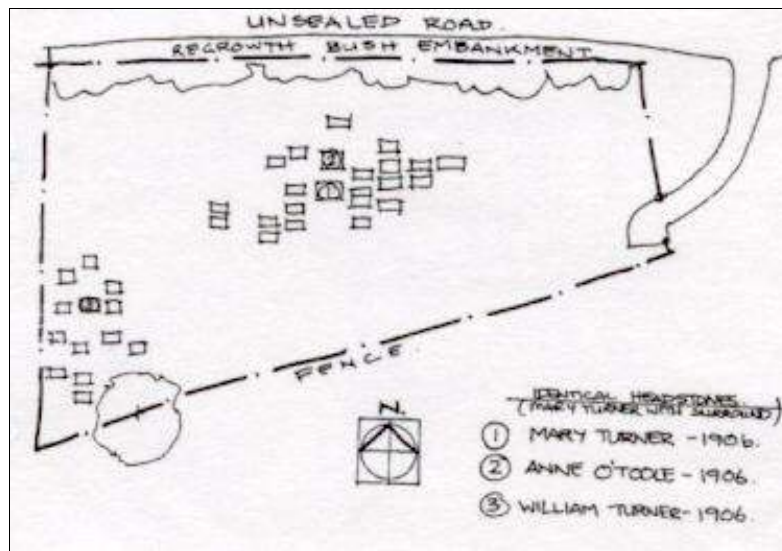 UNSEALED ROAD.
REGROWTH BUSH EMBANKMENT
2
1
3
FENCE.
N.
IDENTICAL HEADSTONES.
(MARY TURNER WITH SURROUND)
1 MARY TURNER - 1906.
2 ANNE O'TOOLE - 1906.
3 WILLIAM TURNER - 1906.